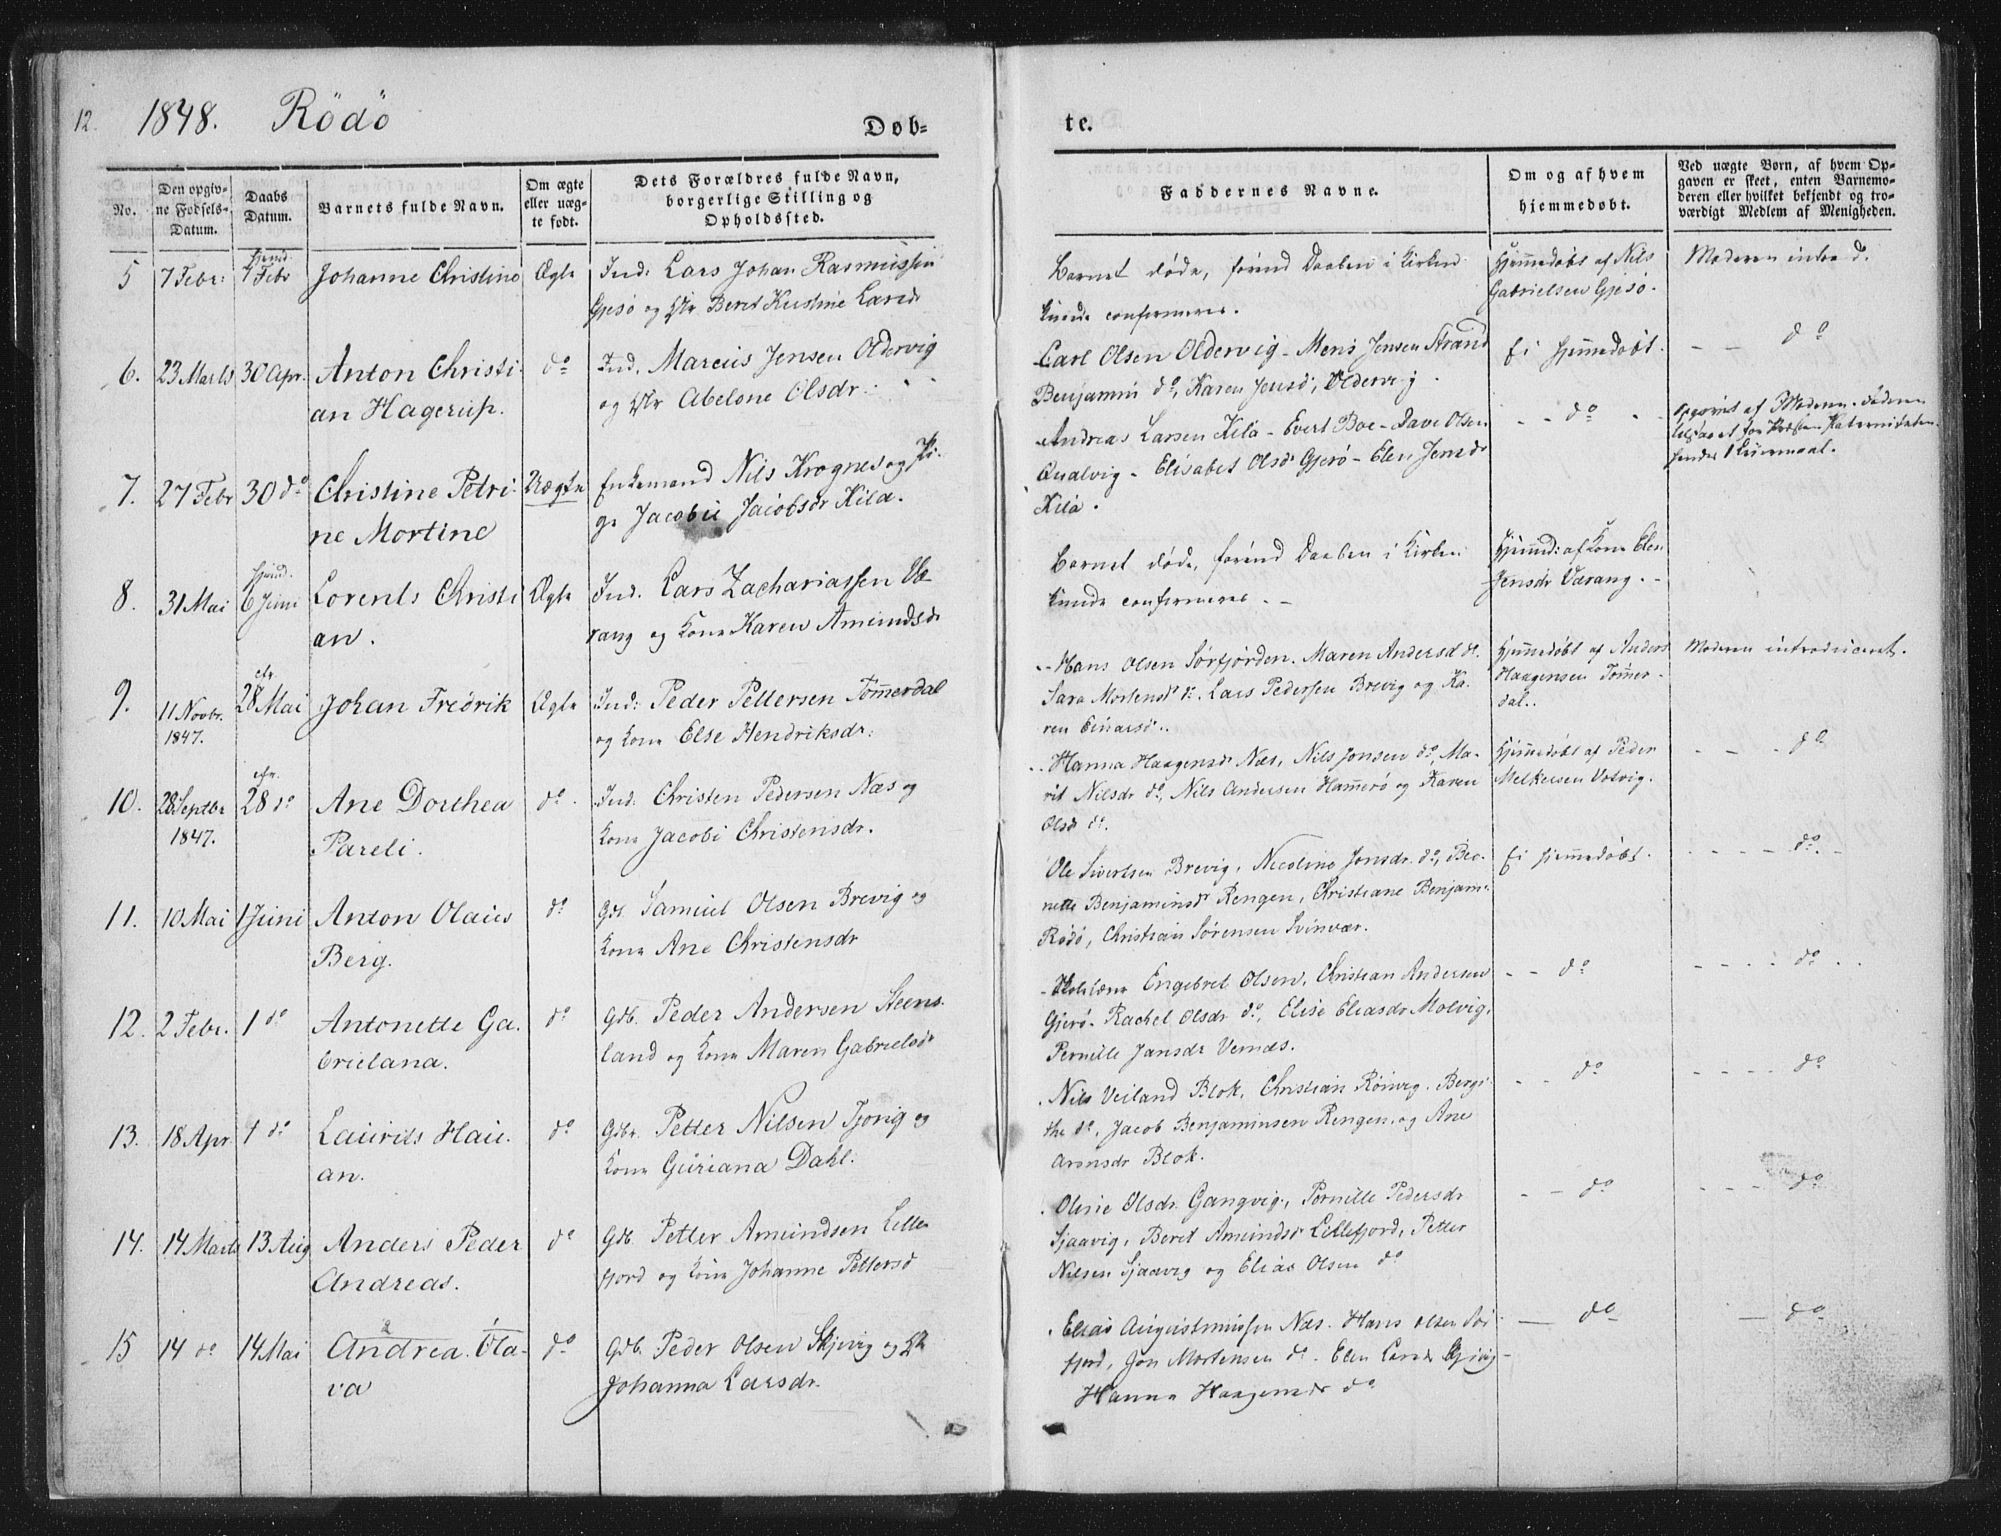 12.
1848. Rödö
Døb-
te.
No.
Den opgiv-
ne Fødsels-
Datum.
Daabs
Datum.
Barnets fulde Navn.
Om ægte
eller uæg-
te født.
Dets Forældres fulde Navn,
borgerlige Stilling og
Opholdssted.
Faddernes Navne.
Om og af hvem
hjemmedøbt.
Ved uægte Børn, af hvem Op-
gaven er skeet, enten Barnemo-
deren eller hvilket bekjendt og tro-
værdigt Medlem af Menigheden.
5 7 Febr: hjemd. 7 Febr Johanne Christine Ægte
Ind: Lars Johan Rasmussen
Gjesø og Berit Kristine Larsd
Barnet døde, førend Daaben i Kirken
kunde confirmeres.
Hjemmedøbt af Nils
Gabrielsen Gjesö.
Moderen introd.
6. 23 Marts 30 Apr. Anton Christi-
an Hagerup.
do
Ind. Marcus Jensen Oldervig
og Abelone Olsdr.
Carl Olsen Oldervig - Mens Jensen Strand
Benjamin do, Karen Jensd, Oldervig.
Ei hjemmedöbt.
- - do
7. 27 Febr 30 do Christine Petri-
ne Mortine
Uægte
Enkemand Nils Krognes og Pi-
ge Jacobie Jacobsdr Kila.
Andreas Larsen Kila - Evert Boe - Dave Olsen
Qualvig - Elisabet Olsdr Gjerö - Elen Jensdr
Kila.
- - do -
Opgivet af Moderen
8. 31 Mai hjemd. 6 Juni Lorents Christi
an.
Ægte
Ind. Lars Zachariassen Væ-
rang og Kone Karen Amundsdr
Barnet døde, førend Daaben i Kirken
kunde confirmeres. -
Hjemmd: af Kone Elen
Jensdr Værang. -
9. 11 Novbr.
1847.
chr. 28 Mai Johan Fredrik Ægte
Ind: Peder Pettersen Tömmerdal
og Kone Else Hendriksdr:
Hans Olsen Sörfjorden. Maren Andersd do.
Sara Mortensd do. Lars Pedersen Brevig og Ka-
ren Einarsd.
Hjemmedöbt af Anders
Haagensen Tömer-
dal.
Moderen introduceret.
10. 28 Septbr
1847.
chr. 28 do Ane Dorthea
Pareli.
do.
Ind: Christen Pedersen Næs og
Kone Jacobi Christensdr.
Hanna Haagensd Næs, Nils Jonsen do, Ma-
rit Nilsdr do, Nils Andersen Hammerö og Karen
Olsd do.
Hjemmedöbt af Peder
Melkersen Votvig.
- - - do
11. 10 Mai 1 Juni Anton Olaus
Berg.
do
Gdb. Samuel Olsen Brevig og
Kone Ane Christensdr
Ole Sivertsen Brevig, Nicoline Jonsdr. do, Ber-
nette Benjaminsd Rengen, Christiane Benjam.
Rödö, Christian Sörensen Svinvær.
Ei hjemmedöbt.
- - - - do. -
12. 2 Febr. 1 do Antonette Ga-
brielana.
do
Gdb. Peder Andersen Steens-
land og Kone Maren Gabrielsdr
Engebret Olsen, Christian Andersen
Gjerö. Rachel Olsdr do, Elise Eliasdr Molvig,
Pernille Jansdr Vernæs.
- - do
- - - - do. . .
13. 18 Apr 1 do Laurits Hau-
an.
do
Gdbr. Petter Nilsen Tjong og
Kone Guriana Dahl.
Nils Veiland Blok, Christian Röinvg. Bergi-
the do, Jacob Benjaminsen Rengen, og Ane
Aronsdr Blok.
- - do
- - - - do
14. 14 Marts 13 Aug Anders Peder
Andreas.
do
Gdb. Petter Amundsen Lille-
fjord og Kone Johanne Pettersd
Oline Olsdr. Gangvig, Pernille Pedersdr
Sjaavig, Berit Amundsdr Lillefjord, Petter
Nilsen Sjaavig og Elias Olsen do
- - do
- - - - do
15 14 do 14 Mai Andrea Ola-
va
do
Gdb. Peder Olsen Skjevig og
Johanna Larsdr.
Elias Augustinussen Næs. Hans Olsen Sör-
fjord, Jon Mortensen do. Elen Larsdr
Hanna Haagensdr do
- do
- do